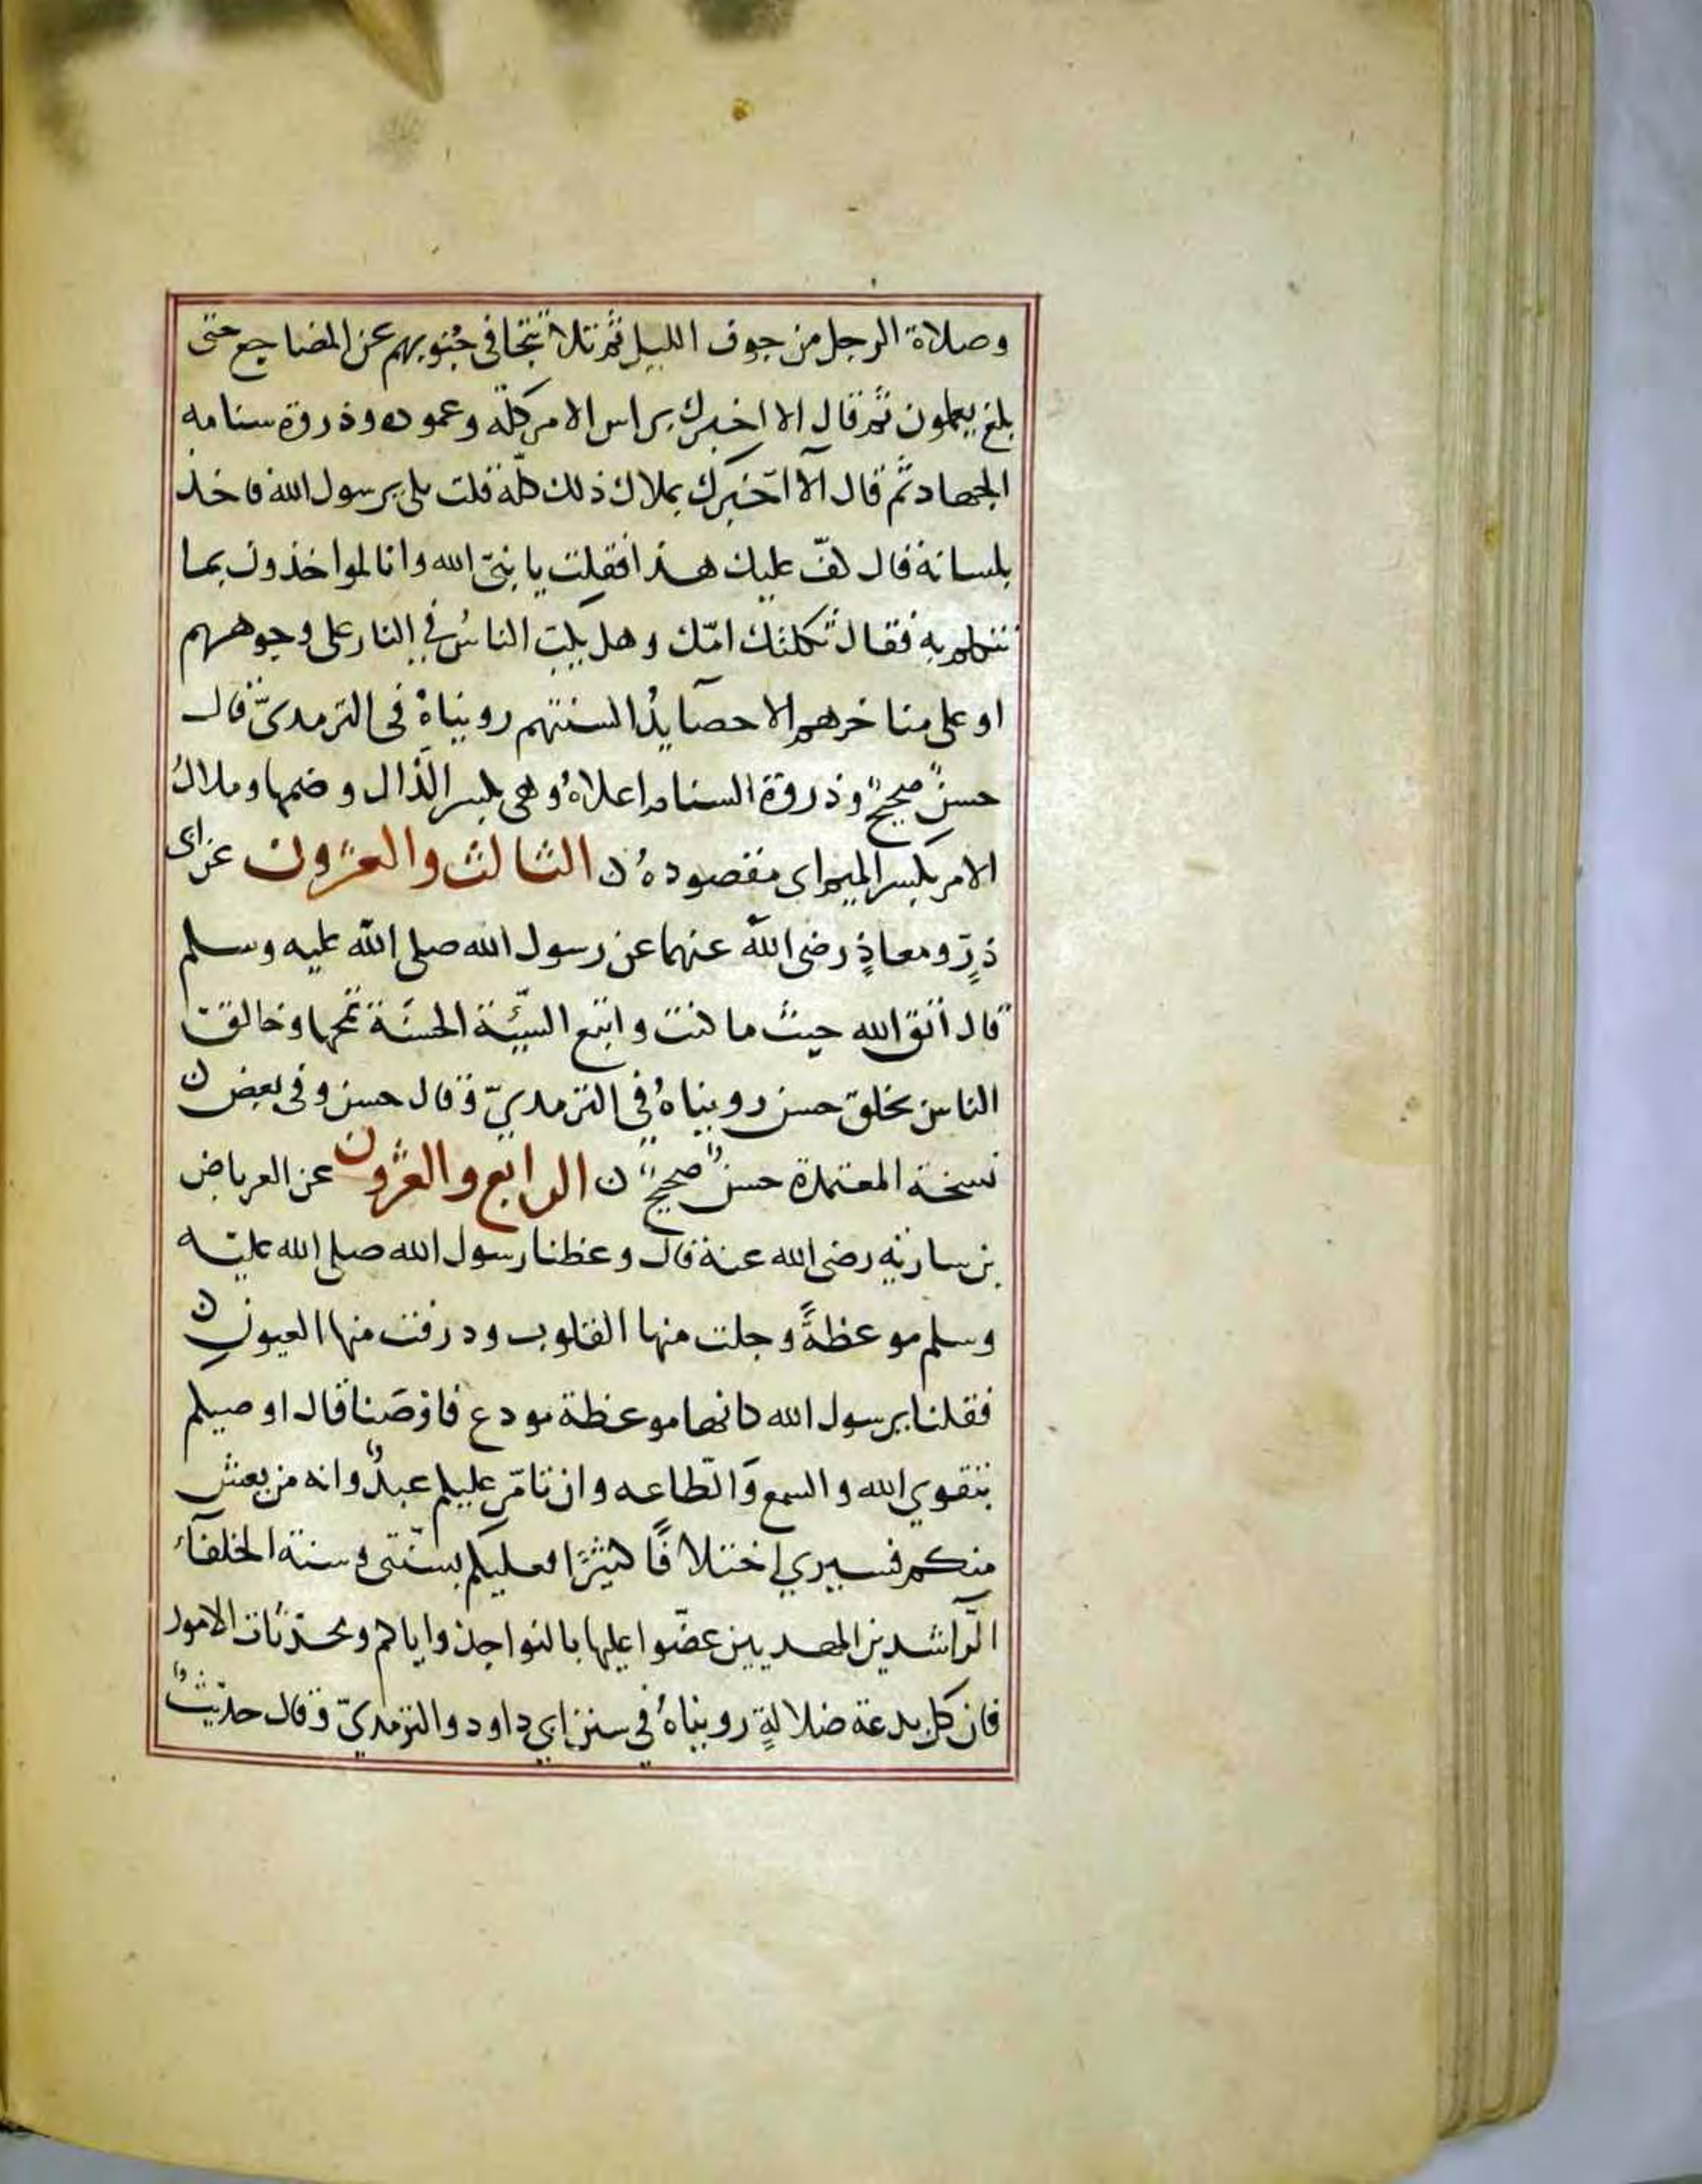 وصلاة الرجل من جوف الليل ثم تلا تتجافى جنوبهم عن المضاجع حتى
بلغ يعلمون ثم قال الا اخبرك براس الامر كلّه وعموده وذروة سنامه
الجهاد ثم قال ألا أخبرك بملاك ذلك كلّه قلت بلى يرسول الله فاخذ
بلسانه قال كفّ عليك هذا فقلت يا نبيّ الله وانا لمواخذون بما
نتكلم به فقال ثكلتك امّك وهل يكبّ الناسُ في النار على وجوههم
او على مناخرهم الا حصآيدُ السنتهم رويناهُ فى الترمدىّ قال
حسنٌ صحيحٌ وذروة السنام اعلاهُ وهى بكسر الذّال وضمها وملاكُ
الامر بكسر الميم اى مقصودهُ ن الثالث والعشرون عن ابى
ذرّ ومعاذٍ رضى الله عنهما عن رسول الله صلى الله عليه وسلم
قال اتق الله حيث ما كنت واتبع السّيّئة الحسَنَة تمحها وخالق
الناس بخلق حسن رويناهُ في الترمديّ وقال حسن وفى بعض ن
نسخة المعتمدة حسنٌ صحيحٌ ن الرابع والعشرون عن العرباض
بن سارية رضى الله عنه قال وعظنا رسول الله صلى الله عليه
وسلم موعظةً وجلت منها القلوب ودرفت منها العيون ن
فقلنا يرسول الله كانها موعظة مودع فاوْصَنا قال اوصيكم
بتقوي الله والسمع وَالطاعه وان تامّر عليكم عبدٌ وانه من يعش
منكم فسيري اختلافًا كثيرًا فعليكم بسنّتى وسنة الخلفآء
الرّاشدين المهديين عضّوا عليها بالنواجذ واياكم ومحدّثات الامور
فان كل بدعة ضلالةٍ رويناهُ في سنن ابي داود والترمديّ وقال حديثٌ